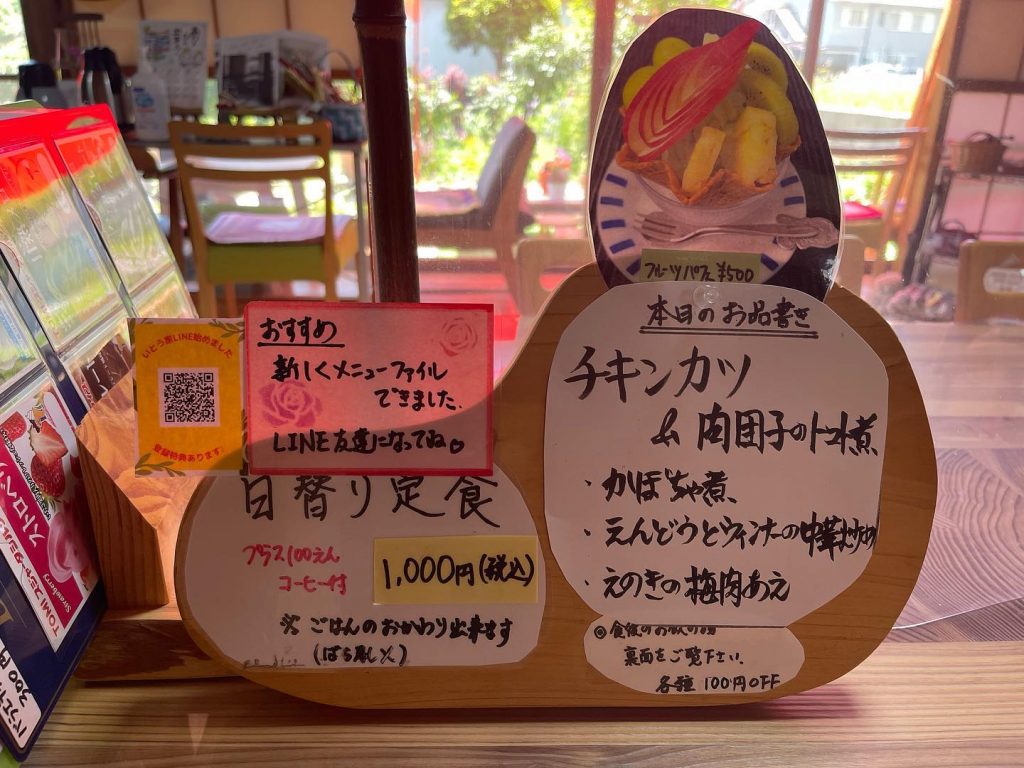 フルーツパフェ ¥500
本日のお品書き
チキンカツ
& 肉団子のトマト煮
・かぼちゃ煮
・えんどうとウィンナーの中華炒め
・えのきの梅肉あえ
◎食後のお飲み物
裏面をご覧下さい。
各種 100円OFF
いとう家LINE始めました
登録特典あります
おすすめ
新しくメニューファイル
できました.
LINE友達になってね♡
日替り定食
プラス100えん
コーヒー付
1,000円(税込)
※ごはんのおかわり出来ます
ストロベリー
Strawberry
TOMIZ
300円